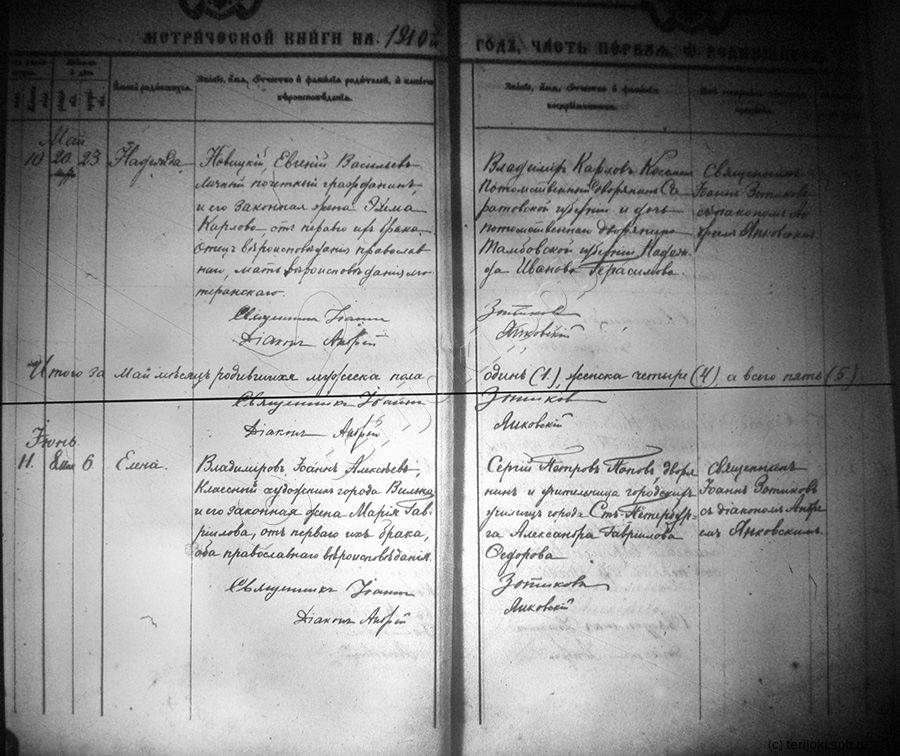 МЕТРИЧЕСКОЙ КНИГИ НА 1910й
ГОДЪ, ЧАСТЬ ПЕРВАЯ, О РОДИВШИХСЯ
Званіе, имя, отчество и фамилія родителей, и какого
вѣроисповѣданія.
Званіе, имя, отчество и фамилія
воспріемниковъ.
Май
10 20 23 Надежда
Новицкій, Евгеній Васильевъ
личный почетный гражданинъ
и его законная жена Эмма
Карлова, отъ перваго ихъ брака.
Отецъ вѣроисповѣданія православ
наго, мать вѣроисповѣданія лю-
теранскаго.
Священникъ Іоаннъ
Діаконъ Андрей
Владиміръ Карловъ
Потомственный дворянинъ Са-
ратовской губерніи и дочь
потомственнаго дворянина
Тамбовской губерніи Надеж-
да Иванова Герасимова.
Зотиковъ
Янковскій
Священникъ
Іоаннъ Зотиковъ
съ діакономъ Ан
Янковскимъ
Итого за Май мѣсяцъ родившихся мужеска пола
одинъ (1), женска четыре (4), а всего пять (5)
Священникъ Іоаннъ
Зотиковъ
Діаконъ Андрей
Янковскій
Іюнь
11. 6 Елена.
Владиміровъ Іоаннъ Алексѣевъ,
Классный художникъ города Вильна
и его законная жена Марія Гав-
ріилова, отъ перваго ихъ брака,
оба православнаго вѣроисповѣданія.
Священникъ Іоаннъ
Діаконъ Андрей
Сергій Петровъ Поповъ дворя
нинъ и учительница городскихъ
училищъ города Стъ-Петербур-
га Александра Гавриилова
Ѳедорова
Зотиковъ
Янковскій
Священникъ
Іоаннъ Зотиковъ
съ діакономъ Андре
емъ Янковскимъ.
(c) terijoki.spb.ru